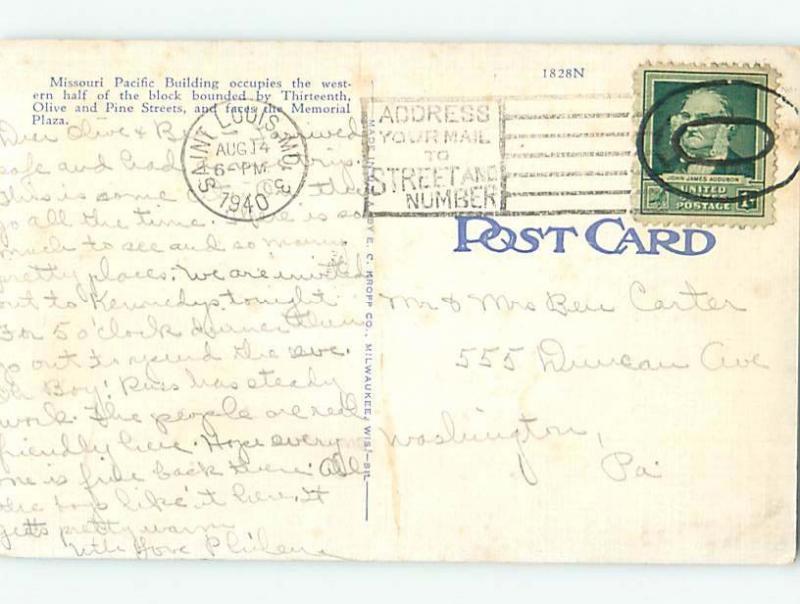 Missouri Pacific Building occupies the west-
ern half of the block bounded by Thirteenth,
Olive and Pine Streets, and faces the Memorial
Plaza.
1828N
SAINT LOUIS, MO. 3
AUG 14
6-PM
1940
ADDRESS
YOUR MAIL
TO
STREET AND
NUMBER
JOHN JAMES AUDUBON
UNITED
STATES
POSTAGE 1¢
POST CARD
MADE BY E. C. KROPP CO., MILWAUKEE, WIS.
Dear Olive &
safe and had trip.
This is some the
go all the time. There is so
much to see and so many
pretty places. We are invited
out to Kennedys tonight
for 5 o'clock dinner then
go out to spend the eve.
Oh Boy! Russ has steady
work. The people are real
friendly here. Hope every
one is fine back there. All
the boys like it here. It
gets pretty warm
With Love Philena
Mr & Mrs Ben Carter
555 Duncan Ave
Washington,
Pa